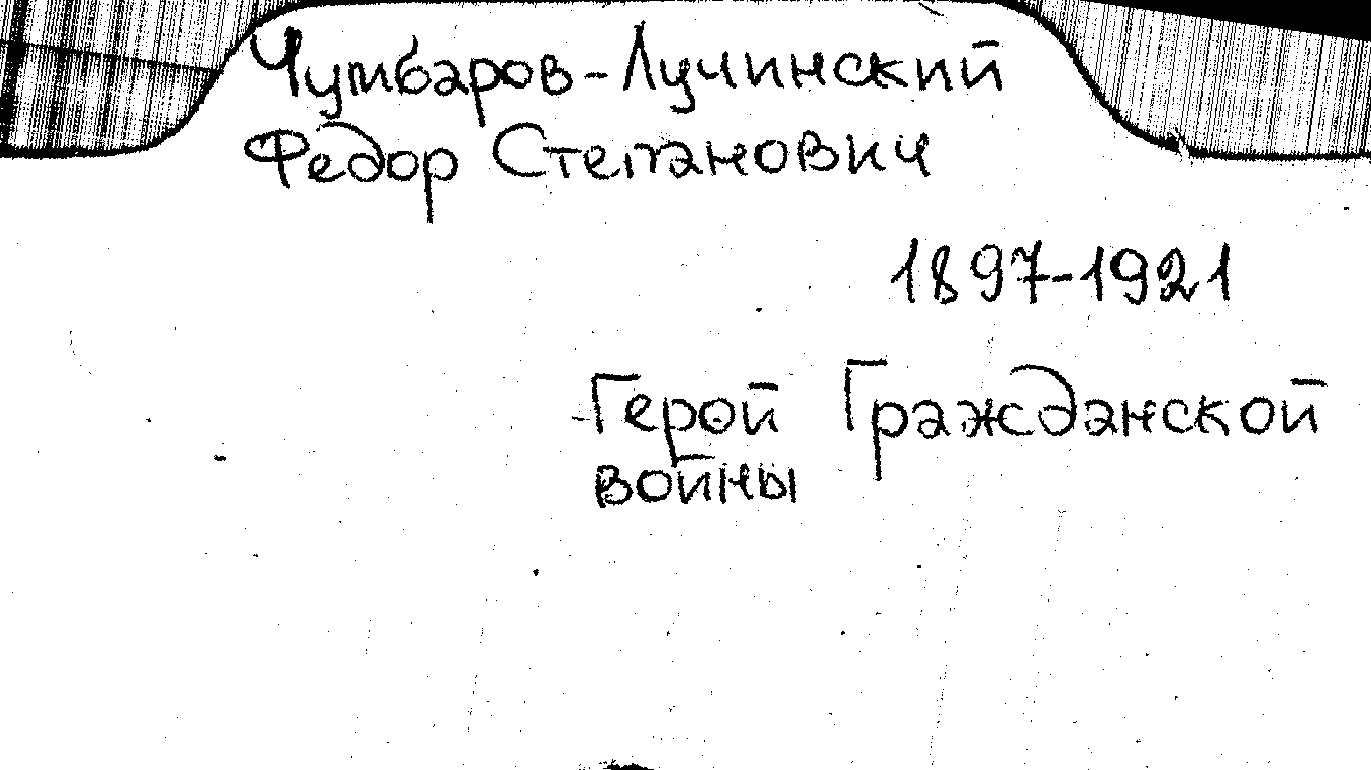 Чумбаров-Лучинский
Федор Степанович
1897-1921
Герой Гражданской
войны